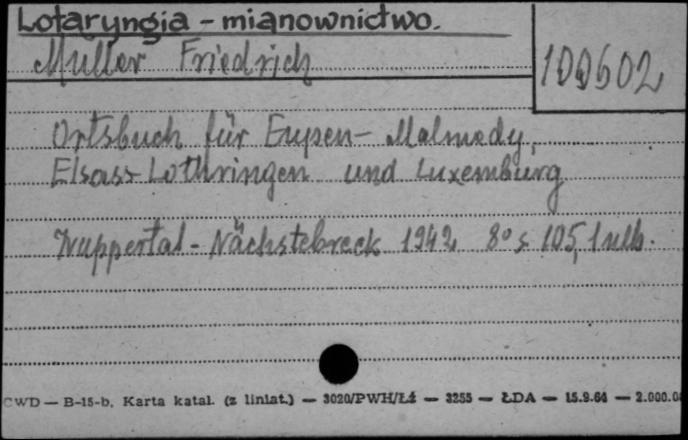 Lotaryngia - mianownictwo.
Muller Friedrich
100602
Ortsbuch für Eupen - Malmedy,
Elsass-Lothringen und Luxemburg
Wuppertal - Nächstebreck 1942 8° s. 105, 1 nlb.
CWD — B-15-b. Karta katal. (z liniat.) — 3020/PWH/Łź — 3255 — ŁDA — 15.9.64 — 2.000.0